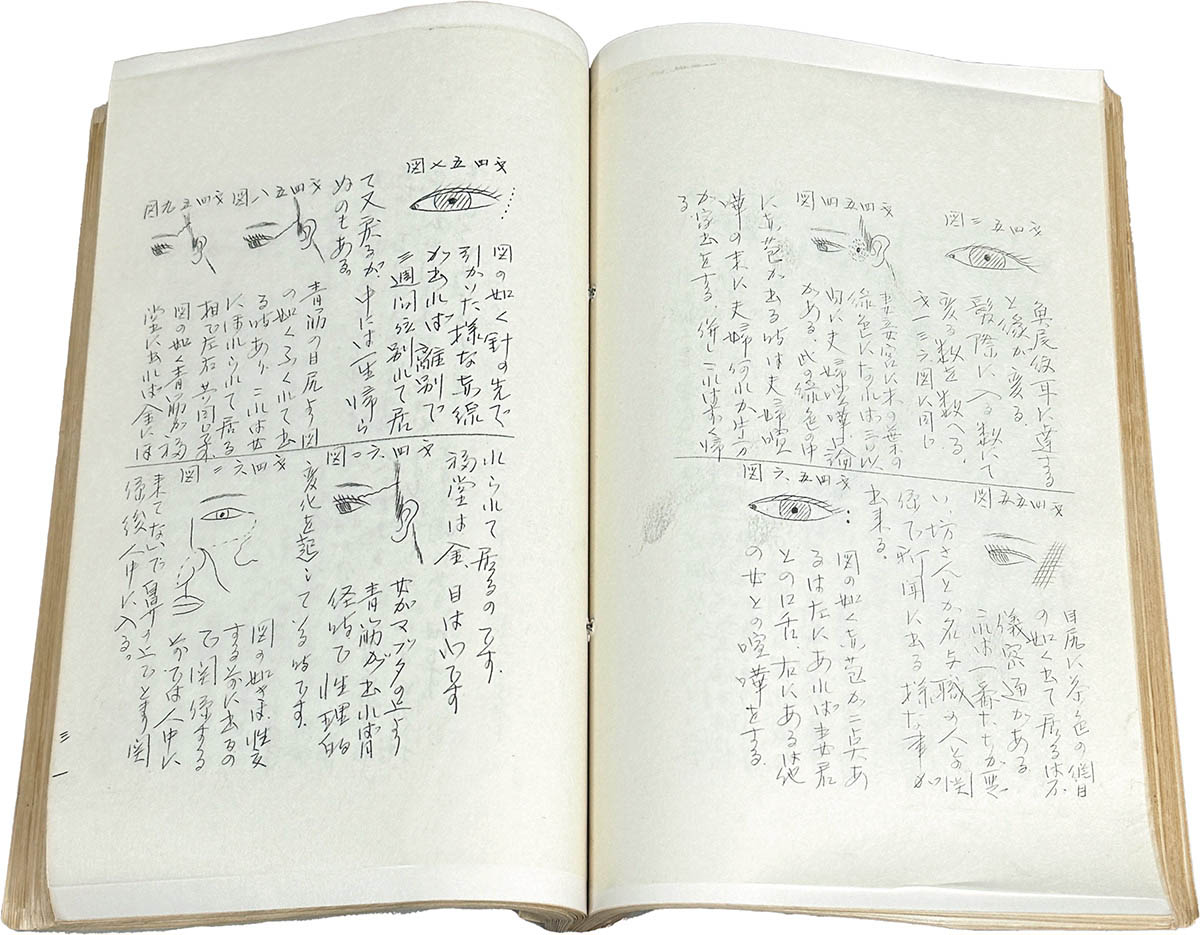 才四五三図
魚尾紋耳に達する
と後が変る。
髪際に入る数にて
変る数を数へる。
才一三六図に同じ
才四五四図
妻妾宮に木の葉の
緑色になれば三日以
内に夫婦喧嘩口論
がある、此の緑色の中
に赤色が出る時は夫婦喧
嘩の末に夫婦何れか片方
が家出をする、併しこれはすぐ帰
る
才四五五図
目尻に茶色の網目
の如く出て居るは不
義密通がある
これは一番たちが悪
い、坊さんとか名与職の人と関
係で新聞に出る様な事が
出来る。
才四五六図
図の如く赤色が二点あ
るは左にあれば妻君
との口舌、右にあるは他
の女との喧嘩をする。
才四五七図
図の如く針の先で
引かいた様な赤線
が出れば離別で
三週間位別れて居
て又戻るが、中には一生帰ら
ぬのもある。
才四五八図
才四五九図
青筋の目尻より図
の如くふくれて出
る時あり、これは女
にほれられて居る
相で左右共同じ
図の如く青筋が福
堂に出れば金にほ
れられて居るのです。
福堂は金 目は心です
才四六〇図
女がマブタの上より
青筋が出れば月
経時で性理的
変化を起している時です。
才四六一図
図の如きは性交
する前に出るの
で関係する
前では人中に
来てないで鼻の上で止まり関
係後人中に入る。
三一